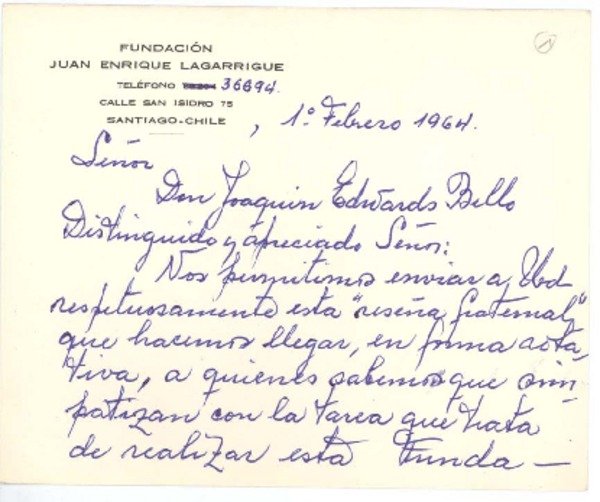 1
FUNDACIÓN
JUAN ENRIQUE LAGARRIGUE
TELÉFONO 36694.
CALLE SAN ISIDRO 75
SANTIAGO-CHILE
, 1º Febrero 1964.
Señor
Don Joaquin Edwards Bello
Distinguido y apreciado Señor:
Nos permitimos enviar a Ud
respetuosamente esta "reseña fraternal"
que hacemos llegar, en forma
tiva, a quienes sabemos que sim-
patizan con la tarea que trata
de realizar esta Funda-